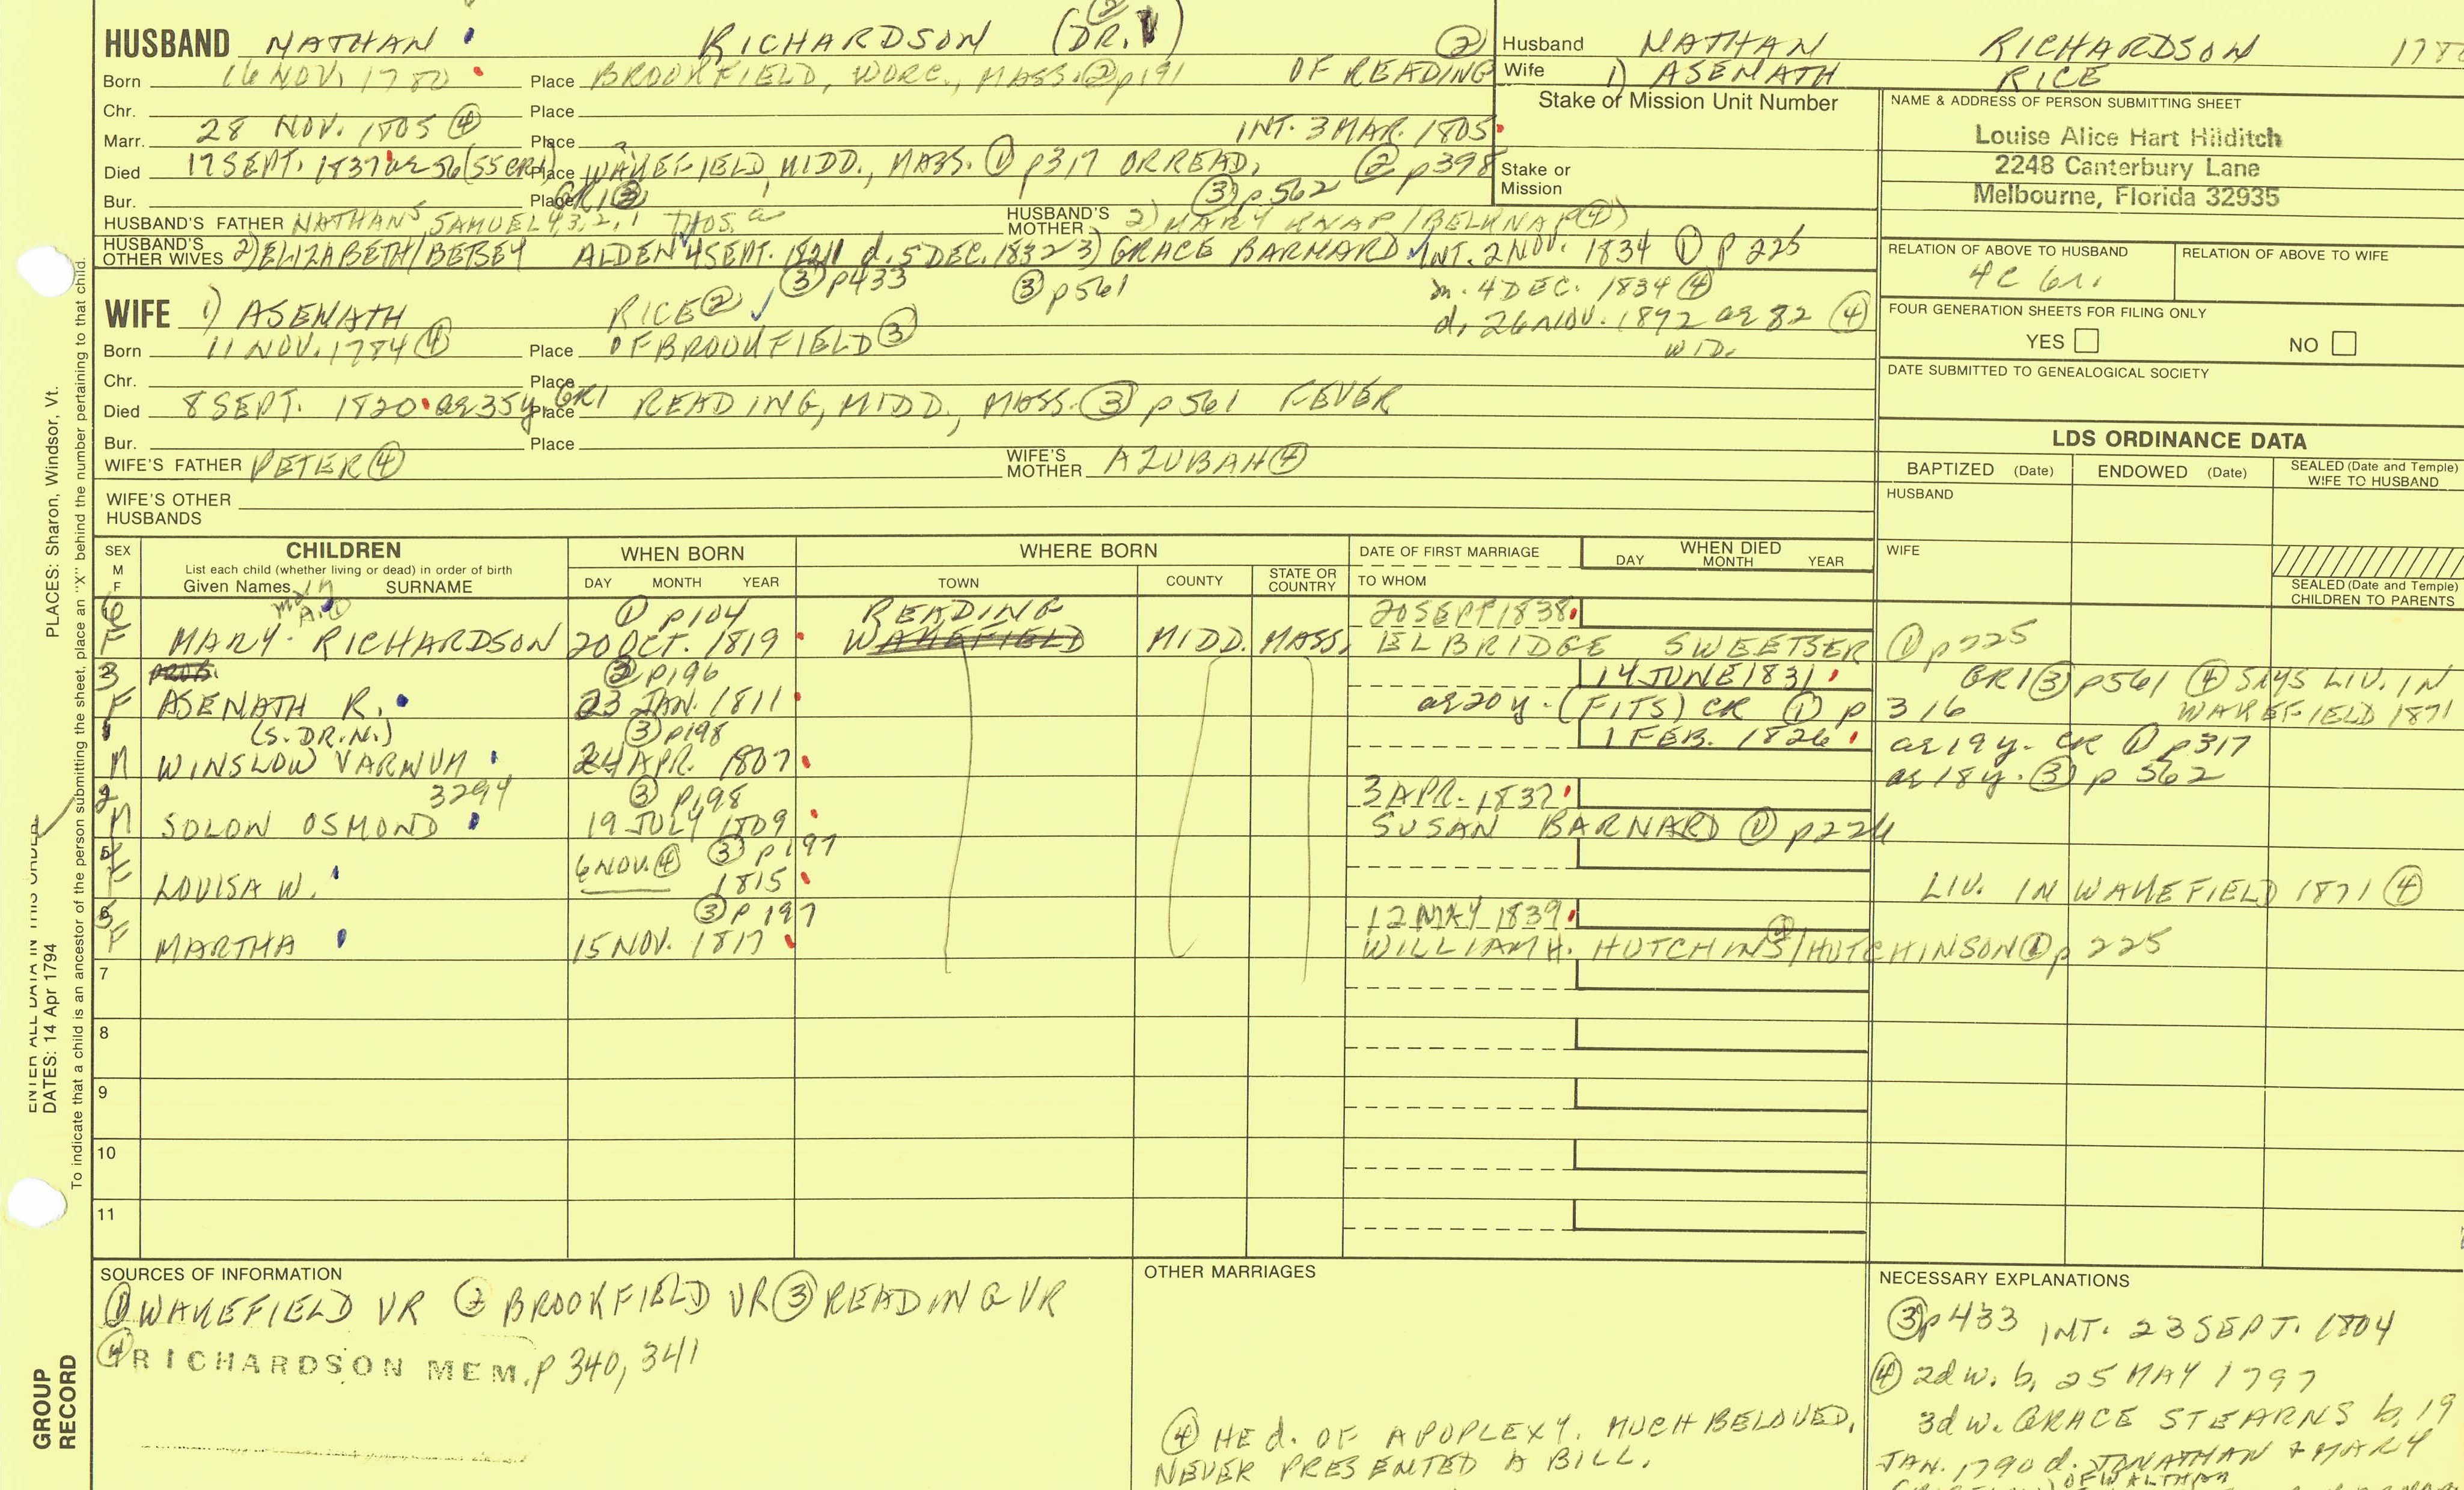 HUSBAND NATHAN RICHARDSON (DR.) ②
Husband NATHAN RICHARDSON
Born 16 NOV. 1780 Place BROOKFIELD, WORC., MASS. ② p191 OF READING
Wife 1) ASENATH RICE
Chr. Place
Stake or Mission Unit Number
Marr. 28 NOV. 1805 ④ Place INT. 3 MAR. 1805
Died 17 SEPT. 1837 ae 56 (55 CR1) Place WAKEFIELD, MIDD., MASS. ① p317 OR READ, ② p398
Stake or
Mission
Bur. Place GR1 ③ ③ p562
HUSBAND'S FATHER NATHAN5, SAMUEL4,3,2,1 THOS.
HUSBAND'S
MOTHER 2) MARY KNAP/BELKNAP ④)
HUSBAND'S
OTHER WIVES 2) ELIZABETH/BETSEY ALDEN 4 SEPT. 1821 d. 5 DEC. 1832 3) GRACE BARNARD INT. 2 NOV. 1834 ① p 225
③ p433 ③ p561 m. 4 DEC. 1834 ④
WIFE 1) ASENATH RICE ② d. 26 NOV. 1872 ae 82 ④
WID.
Born 11 NOV. 1784 ④ Place OF BROOKFIELD ③
Chr. Place
Died 8 SEPT. 1820 ae 35y GR1 Place READING, MIDD., MASS. ③ p561 FEVER
Bur. Place
WIFE'S FATHER PETER ④
WIFE'S
MOTHER AZUBAH ④
WIFE'S OTHER
HUSBANDS
NAME & ADDRESS OF PERSON SUBMITTING SHEET
Louise Alice Hart Hilditch
2248 Canterbury Lane
Melbourne, Florida 32935
RELATION OF ABOVE TO HUSBAND
4C 6r.
RELATION OF ABOVE TO WIFE
FOUR GENERATION SHEETS FOR FILING ONLY
YES NO
DATE SUBMITTED TO GENEALOGICAL SOCIETY
LDS ORDINANCE DATA
BAPTIZED (Date) ENDOWED (Date) SEALED (Date and Temple)
WIFE TO HUSBAND
HUSBAND
WIFE
SEALED (Date and Temple)
CHILDREN TO PARENTS
SEX
M
F
CHILDREN
List each child (whether living or dead) in order of birth
Given Names SURNAME
WHEN BORN
DAY MONTH YEAR
WHERE BORN
TOWN COUNTY STATE OR
COUNTRY
DATE OF FIRST MARRIAGE
TO WHOM
WHEN DIED
DAY MONTH YEAR
6 ① p104 READING 20 SEPT 1838
F MARY RICHARDSON 20 OCT. 1819 WAKEFIELD MIDD. MASS. ELBRIDGE SWEETSER ① p225
3 ② p196 14 JUNE 1831 GR1 ③ p561 ④ SAYS LIV. IN
WAKEFIELD 1871
F ASENATH R. 23 JAN. 1811 ae 20 y. (FITS) CR ① p 316
(S. DR. N.) ③ p198 1 FEB. 1826 ae 19 y. CR ① p317
M WINSLOW VARNUM 24 APR. 1807 ae 18 y. ③ p 562
2 3294 ③ p198 3 APR. 1837
M SOLON OSMOND 19 JULY 1809 SUSAN BARNARD ① p224
6 NOV. ④ ③ p197
F LOUISA W. 1815 LIV. IN WAKEFIELD 1871 ④
5 ③ p 197 12 MAY 1839
F MARTHA 15 NOV. 1817 WILLIAM H. HUTCHINS/HUTCHINSON ① p 225
7
8
9
10
11
SOURCES OF INFORMATION
① WAKEFIELD VR ② BROOKFIELD VR ③ READING VR
④ RICHARDSON MEM. p 340, 341
OTHER MARRIAGES
④ HE d. OF APOPLEXY. MUCH BELOVED,
NEVER PRESENTED A BILL.
NECESSARY EXPLANATIONS
③ p433 INT. 23 SEPT. 1804
④ 2d w. b. 25 MAY 1797
3d w. GRACE STEARNS b. 19
JAN. 1790 d. JONATHAN & MARY
OF WALTHAM
PLACES: Sharon, Windsor, Vt.
ENTER ALL DATA IN THIS ORDER
DATES: 14 Apr 1794
To indicate that a child is an ancestor of the person submitting the sheet, place an "X" behind the number pertaining to that child.
GROUP
RECORD